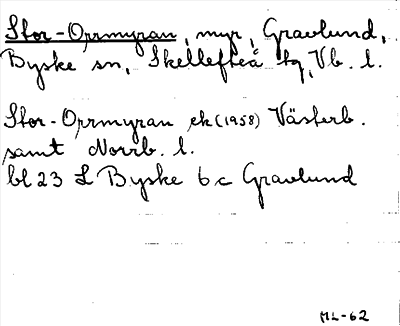 Stor-Orrmyran, myr, Gravlund,
Byske sn, Skellefteå tg, Vb. l.
Stor-Orrmyran ek (1958) Västerb.
samt Norrb. l.
bl 23 L Byske 6 c Gravlund
ML-62